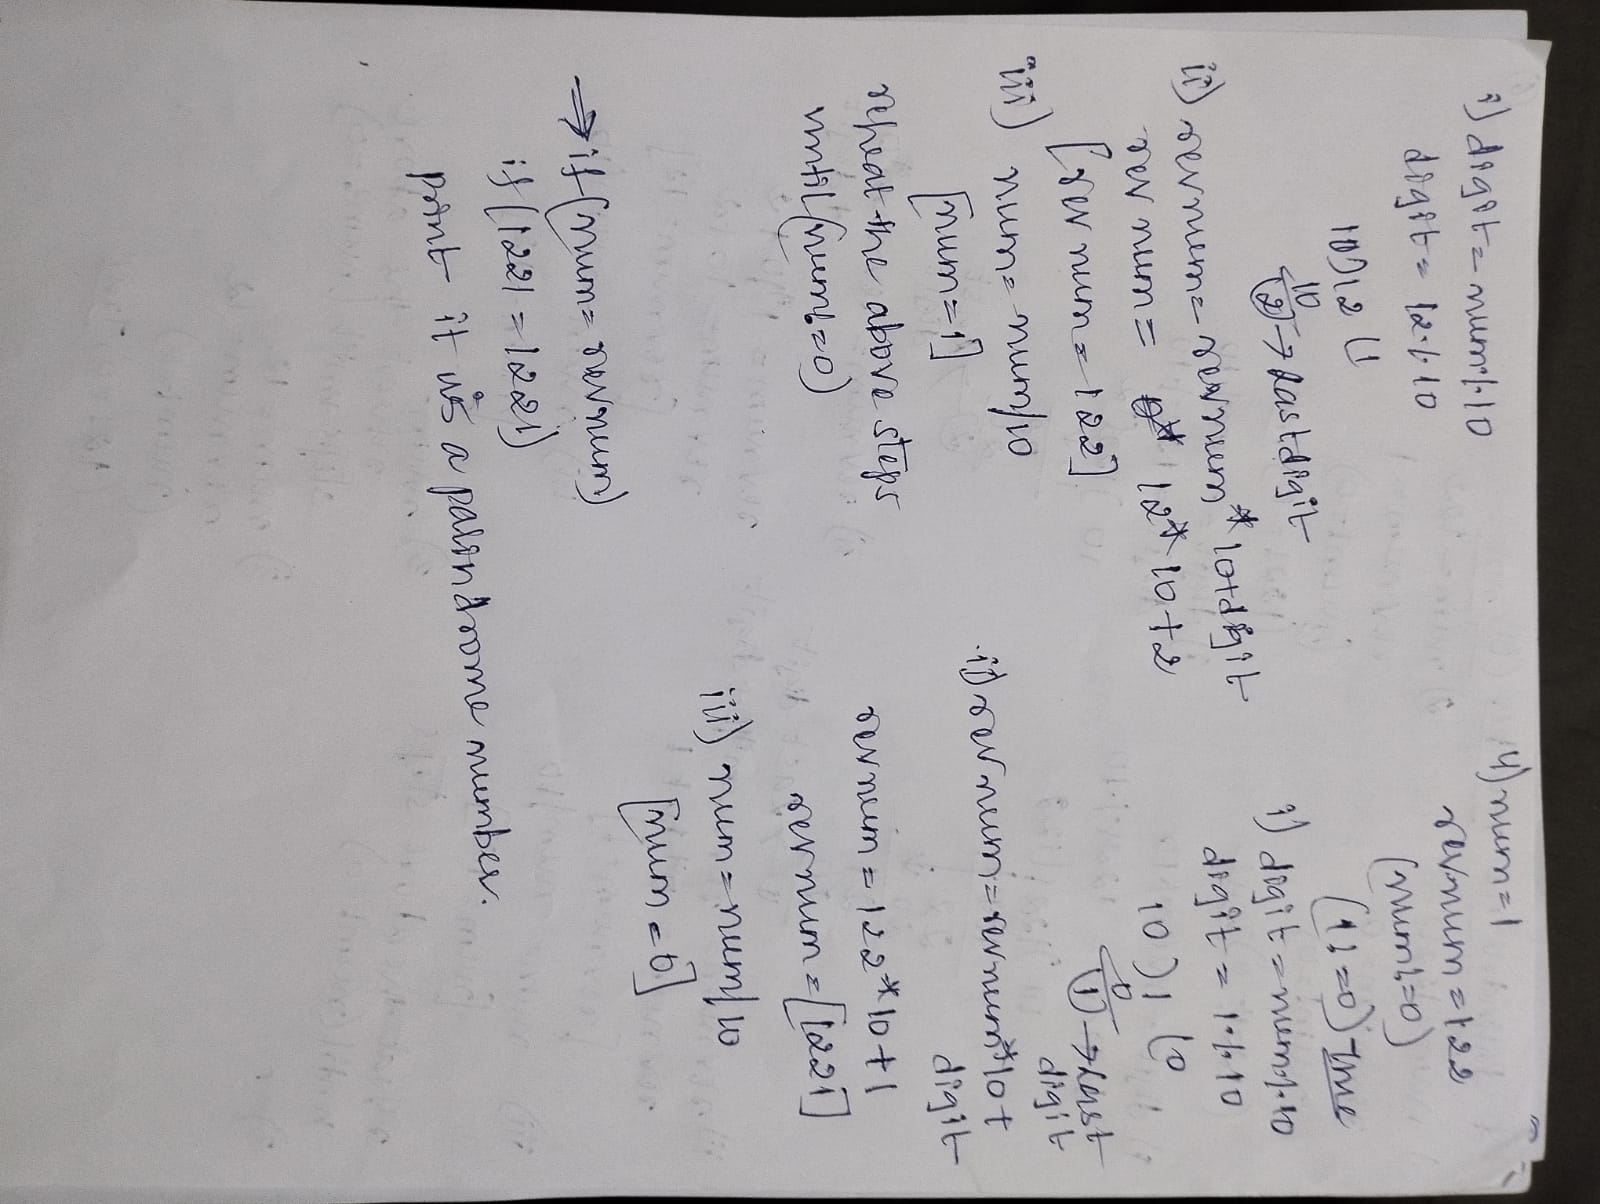 i) digit = num%10
digit = 12%10
10)12(1
10
2 → Last digit
ii) revnum = revnum*10+digit
rev num = 12*10+2
[rev num = 122]
iii) num = num/10
[num=1]
repeat the above steps
until (num!=0)
4) num=1
revnum = 122
(num!=0)
(1!=0) True
i) digit = num%10
digit = 1%10
10)1(0
0
1 → Last
digit
ii) revnum = revnum*10+
digit
revnum = 122*10+1
revnum = [1221]
iii) num = num/10
[num = 0]
⇒ if (num = revnum)
if (1221 = 1221)
print it is a palindrome number.